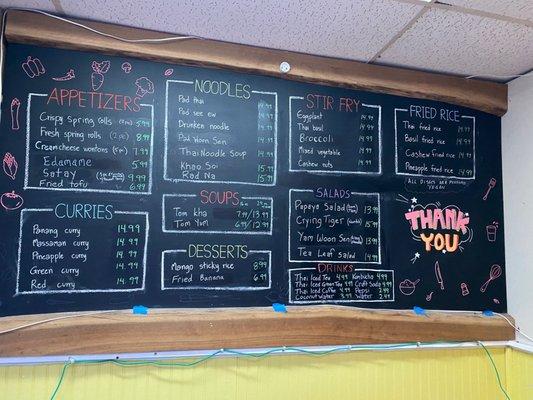 APPETIZERS
Crispy Spring rolls 5.99
Fresh spring rolls (2pc) 8.99
Cream cheese wontons (5pc) 7.99
Edamame 5.99
Satay 9.99
Fried tofu 6.99
CURRIES
Panang curry 14.99
Massaman curry 14.99
Pineapple curry 14.99
Green curry 14.99
Red curry 14.99
NOODLES
Pad thai 14.99
Pad see ew 14.99
Drunken noodle 14.99
Pad Woon Sen 14.99
Thai Noodle Soup 14.99
Khao Soi 15.99
Rad Na 15.99
SOUPS
Tom kha 7.99/13.99
Tom Yum 6.99/12.99
DESSERTS
Mango sticky rice 8.99
Fried Banana 6.99
STIR FRY
Eggplant 14.99
Thai basil 14.99
Broccoli 14.99
Mixed vegetable 14.99
Cashew nuts 14.99
SALADS
Papaya Salad 13.99
Crying Tiger 15.99
Yam Woon Sen 13.99
Tea Leaf Salad 14.99
DRINKS
Thai Iced Tea 4.99 Kombucha 4.99
Thai Iced Green Tea Craft Soda 4.99
Thai Iced Coffee 4.99 Pepsi 2.99
Coconut Water 3.99 Water 2.99
FRIED RICE
Thai fried rice 14.99
Basil fried rice 14.99
Cashew fried rice 14.99
Pineapple fried rice 14.99
THANK
YOU